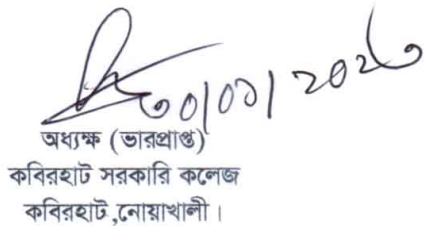 অধ্যক্ষ (ভারপ্রাপ্ত)
কবিরহাট সরকারি কলেজ
কবিরহাট,নোয়াখালী।